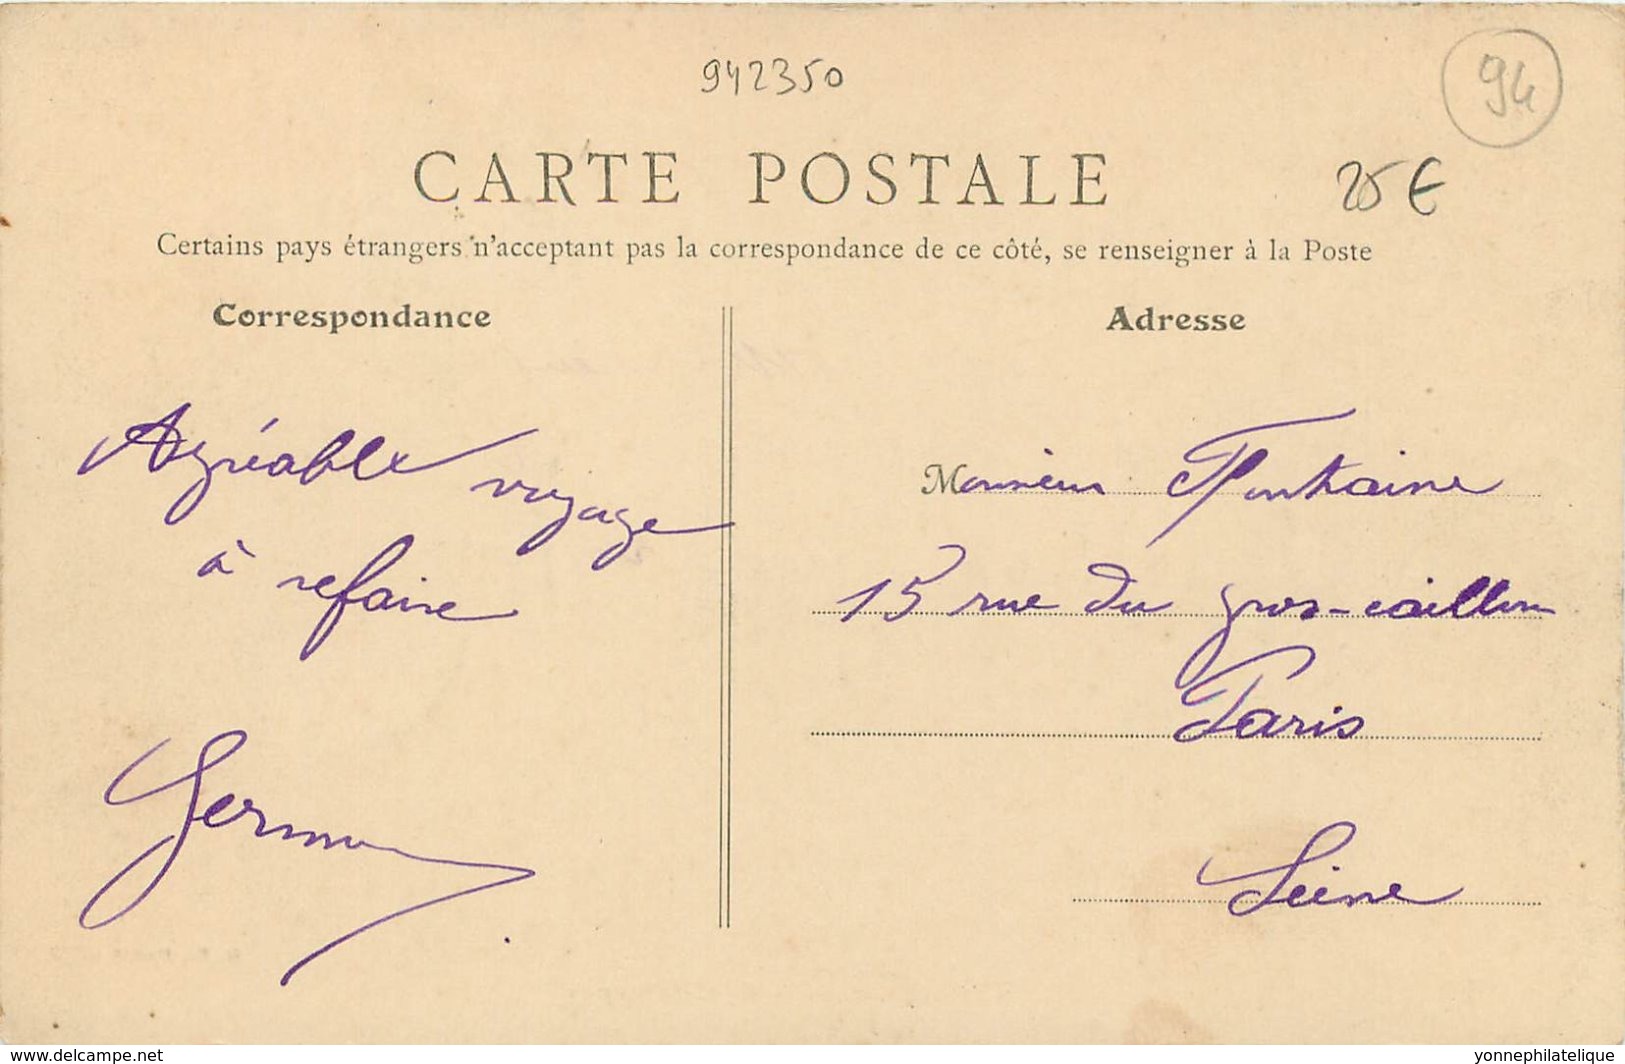 942350
94
CARTE POSTALE
25€
Certains pays étrangers n'acceptant pas la correspondance de ce côté, se renseigner à la Poste
Correspondance
Adresse
Agréable voyage
à refaire
Monsieur Fontaine
15 rue du gros-caillou
Paris
Seine
www.delcampe.net
yonnephilatelique